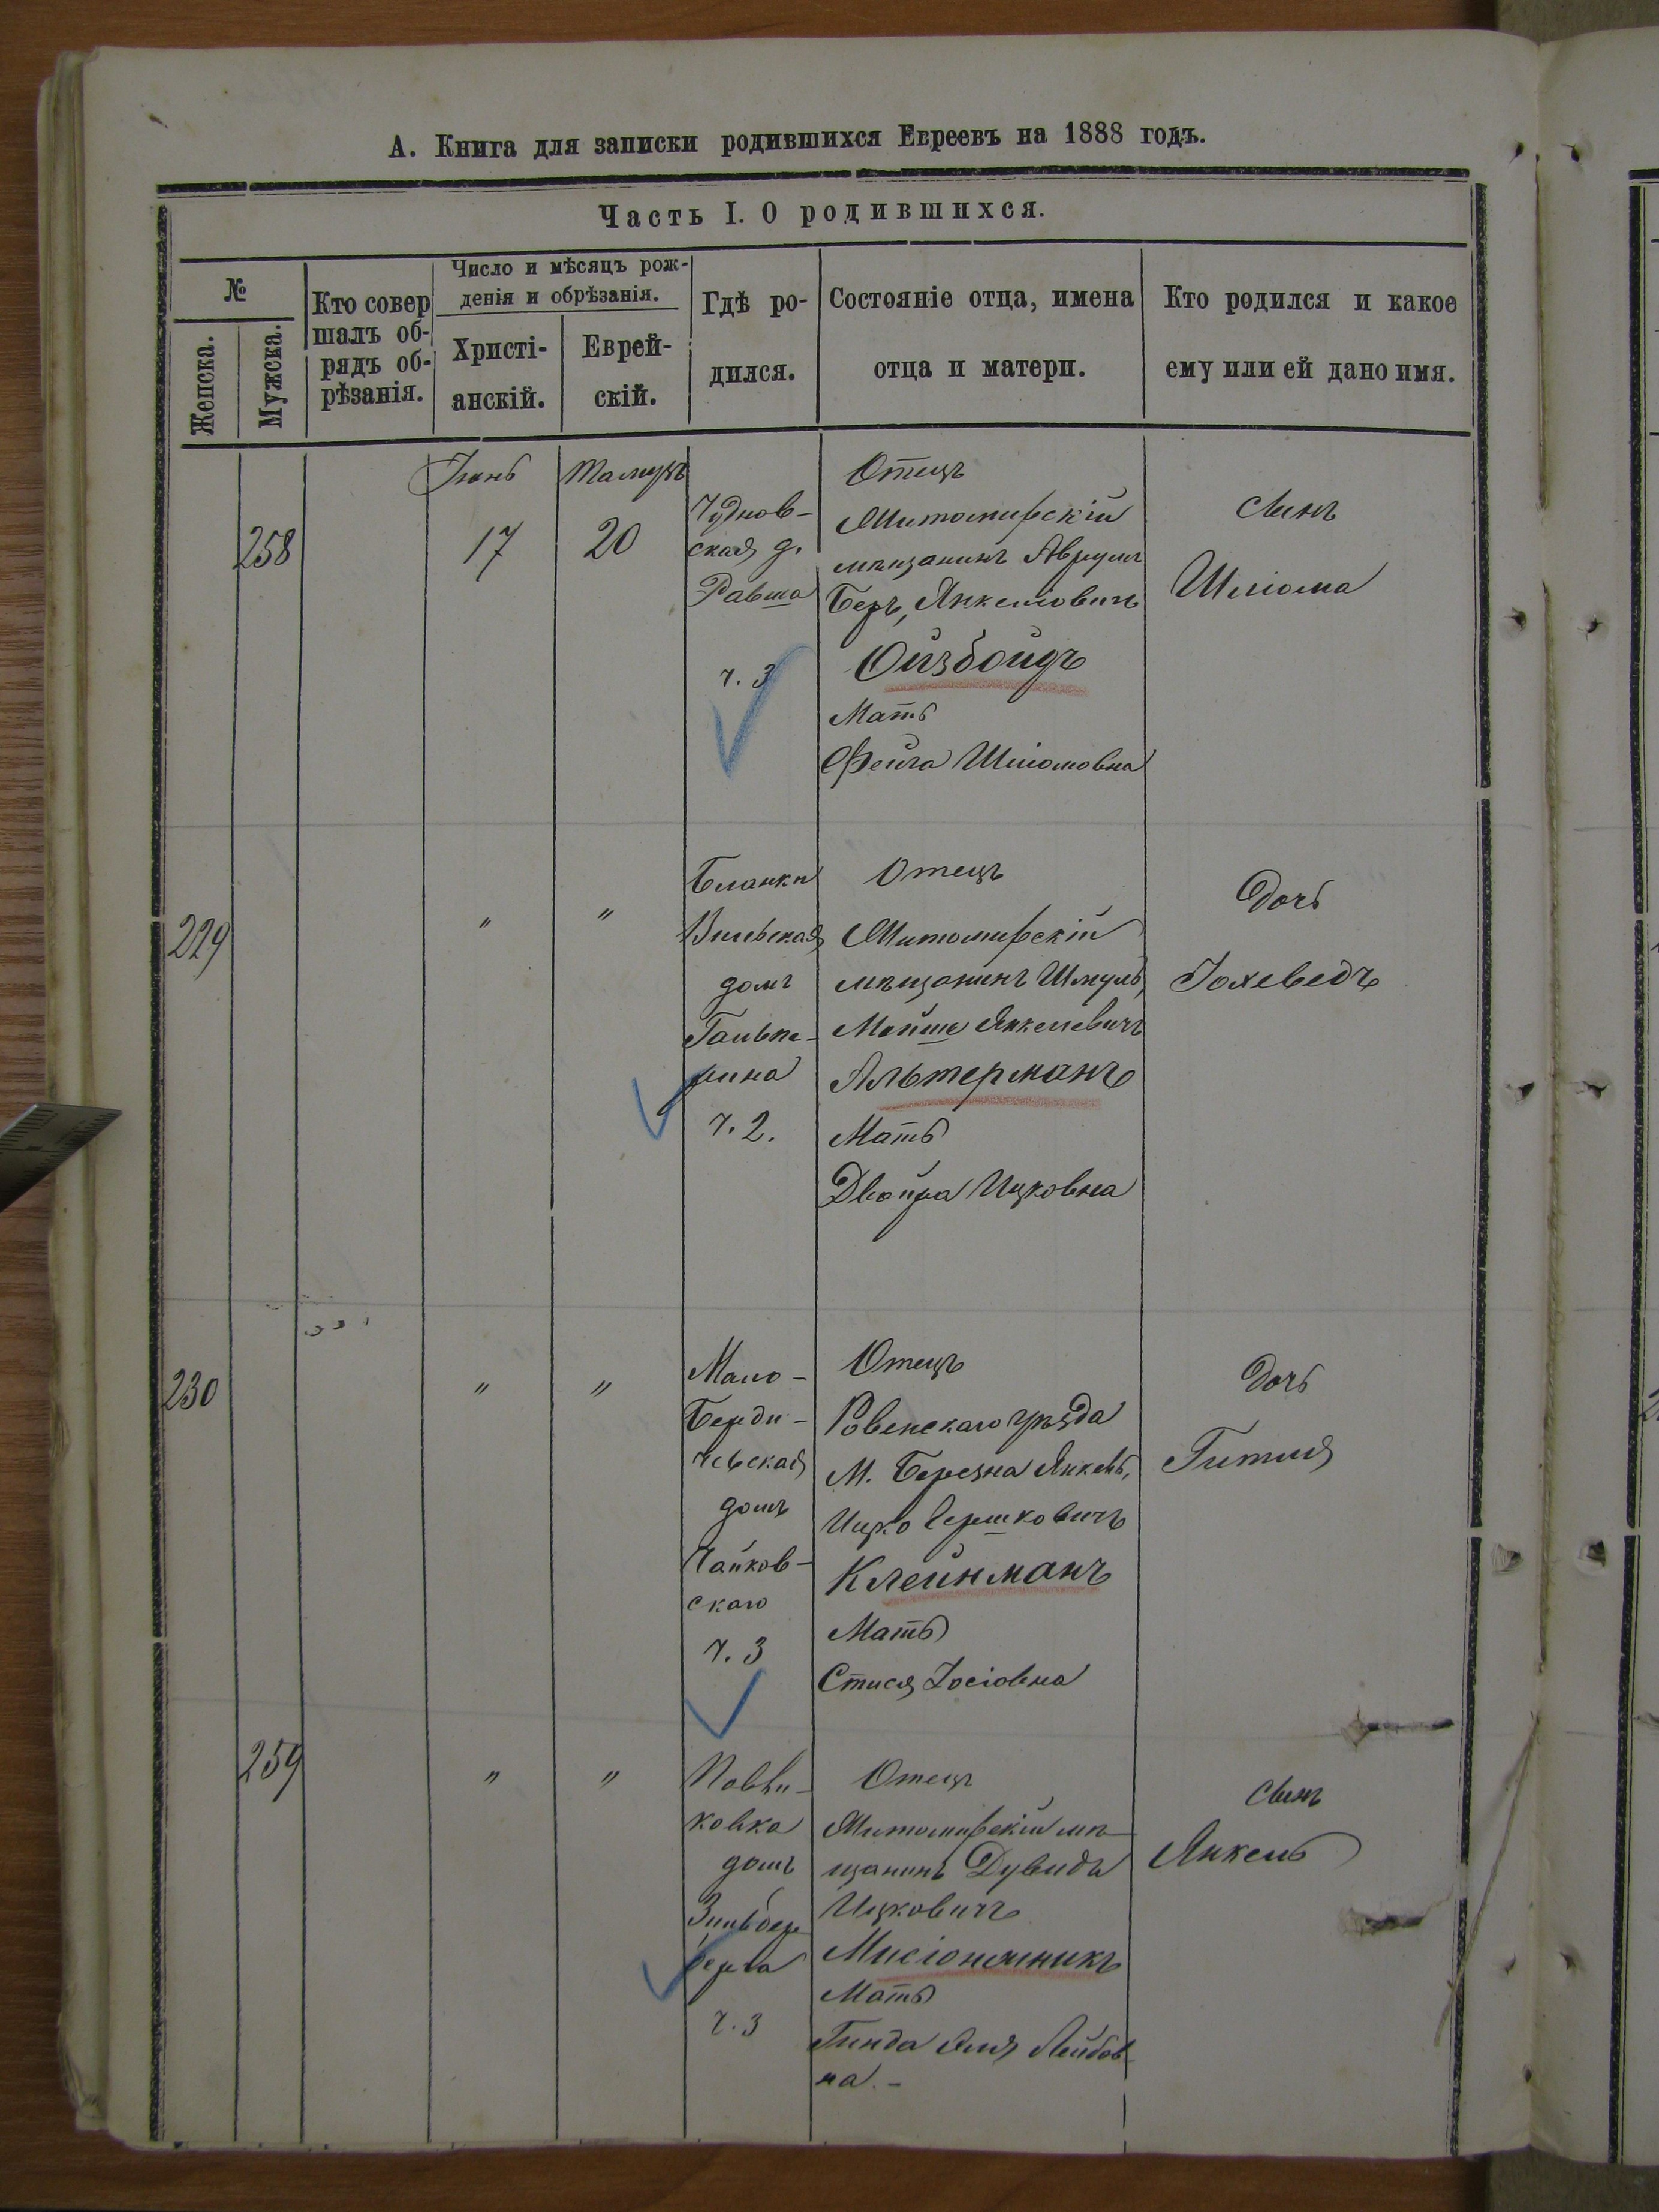 А. Книга для записки родившихся Евреевъ на 1888 годъ.
Часть I. О родившихся.
№
Женска.
Мужска.
Кто совер
шалъ об-
рядъ об-
рѣзанія.
Число и мѣсяцъ рож-
денія и обрѣзанія.
Христі-
анскій.
Еврей-
скій.
Гдѣ ро-
дился.
Состояніе отца, имена
отца и матери.
Кто родился и какое
ему или ей дано имя.
258
Іюнь
17
Тамузъ
20
Чуднов-
ская д.
Равша
ч. 3
Отецъ
Житомирскій
мѣщанинъ Аврумъ
Беръ, Янкеліовичъ
Ойзбойдъ
Мать
Фейга Шліомовна
Сынъ
Шліома
229
"
"
Бланки
Вильская
домъ
Гальпе-
рина
ч. 2.
Отецъ
Житомирскій
мѣщанинъ Шмуль,
Мойше Янкелевичъ
Альтерманъ
Мать
Двойра Ицковна
Дочь
Іохеведъ
230
"
"
Мало-
Берди-
чевская
домъ
Чайков-
скаго
ч. 3
Отецъ
Ровенскаго уѣзда
М. Березна Янкель,
Ицко Гершковичъ
Клейнманъ
Мать
Стися Іосіовна
Дочь
Гитля
259
"
"
ковка
домъ
Зильбер
берга
ч. 3
Отецъ
Житомирскій мѣ-
щанинъ Дувидъ
Ицковичъ
Мать
Гинда Лейбов-
на. -
Сынъ
Янкель